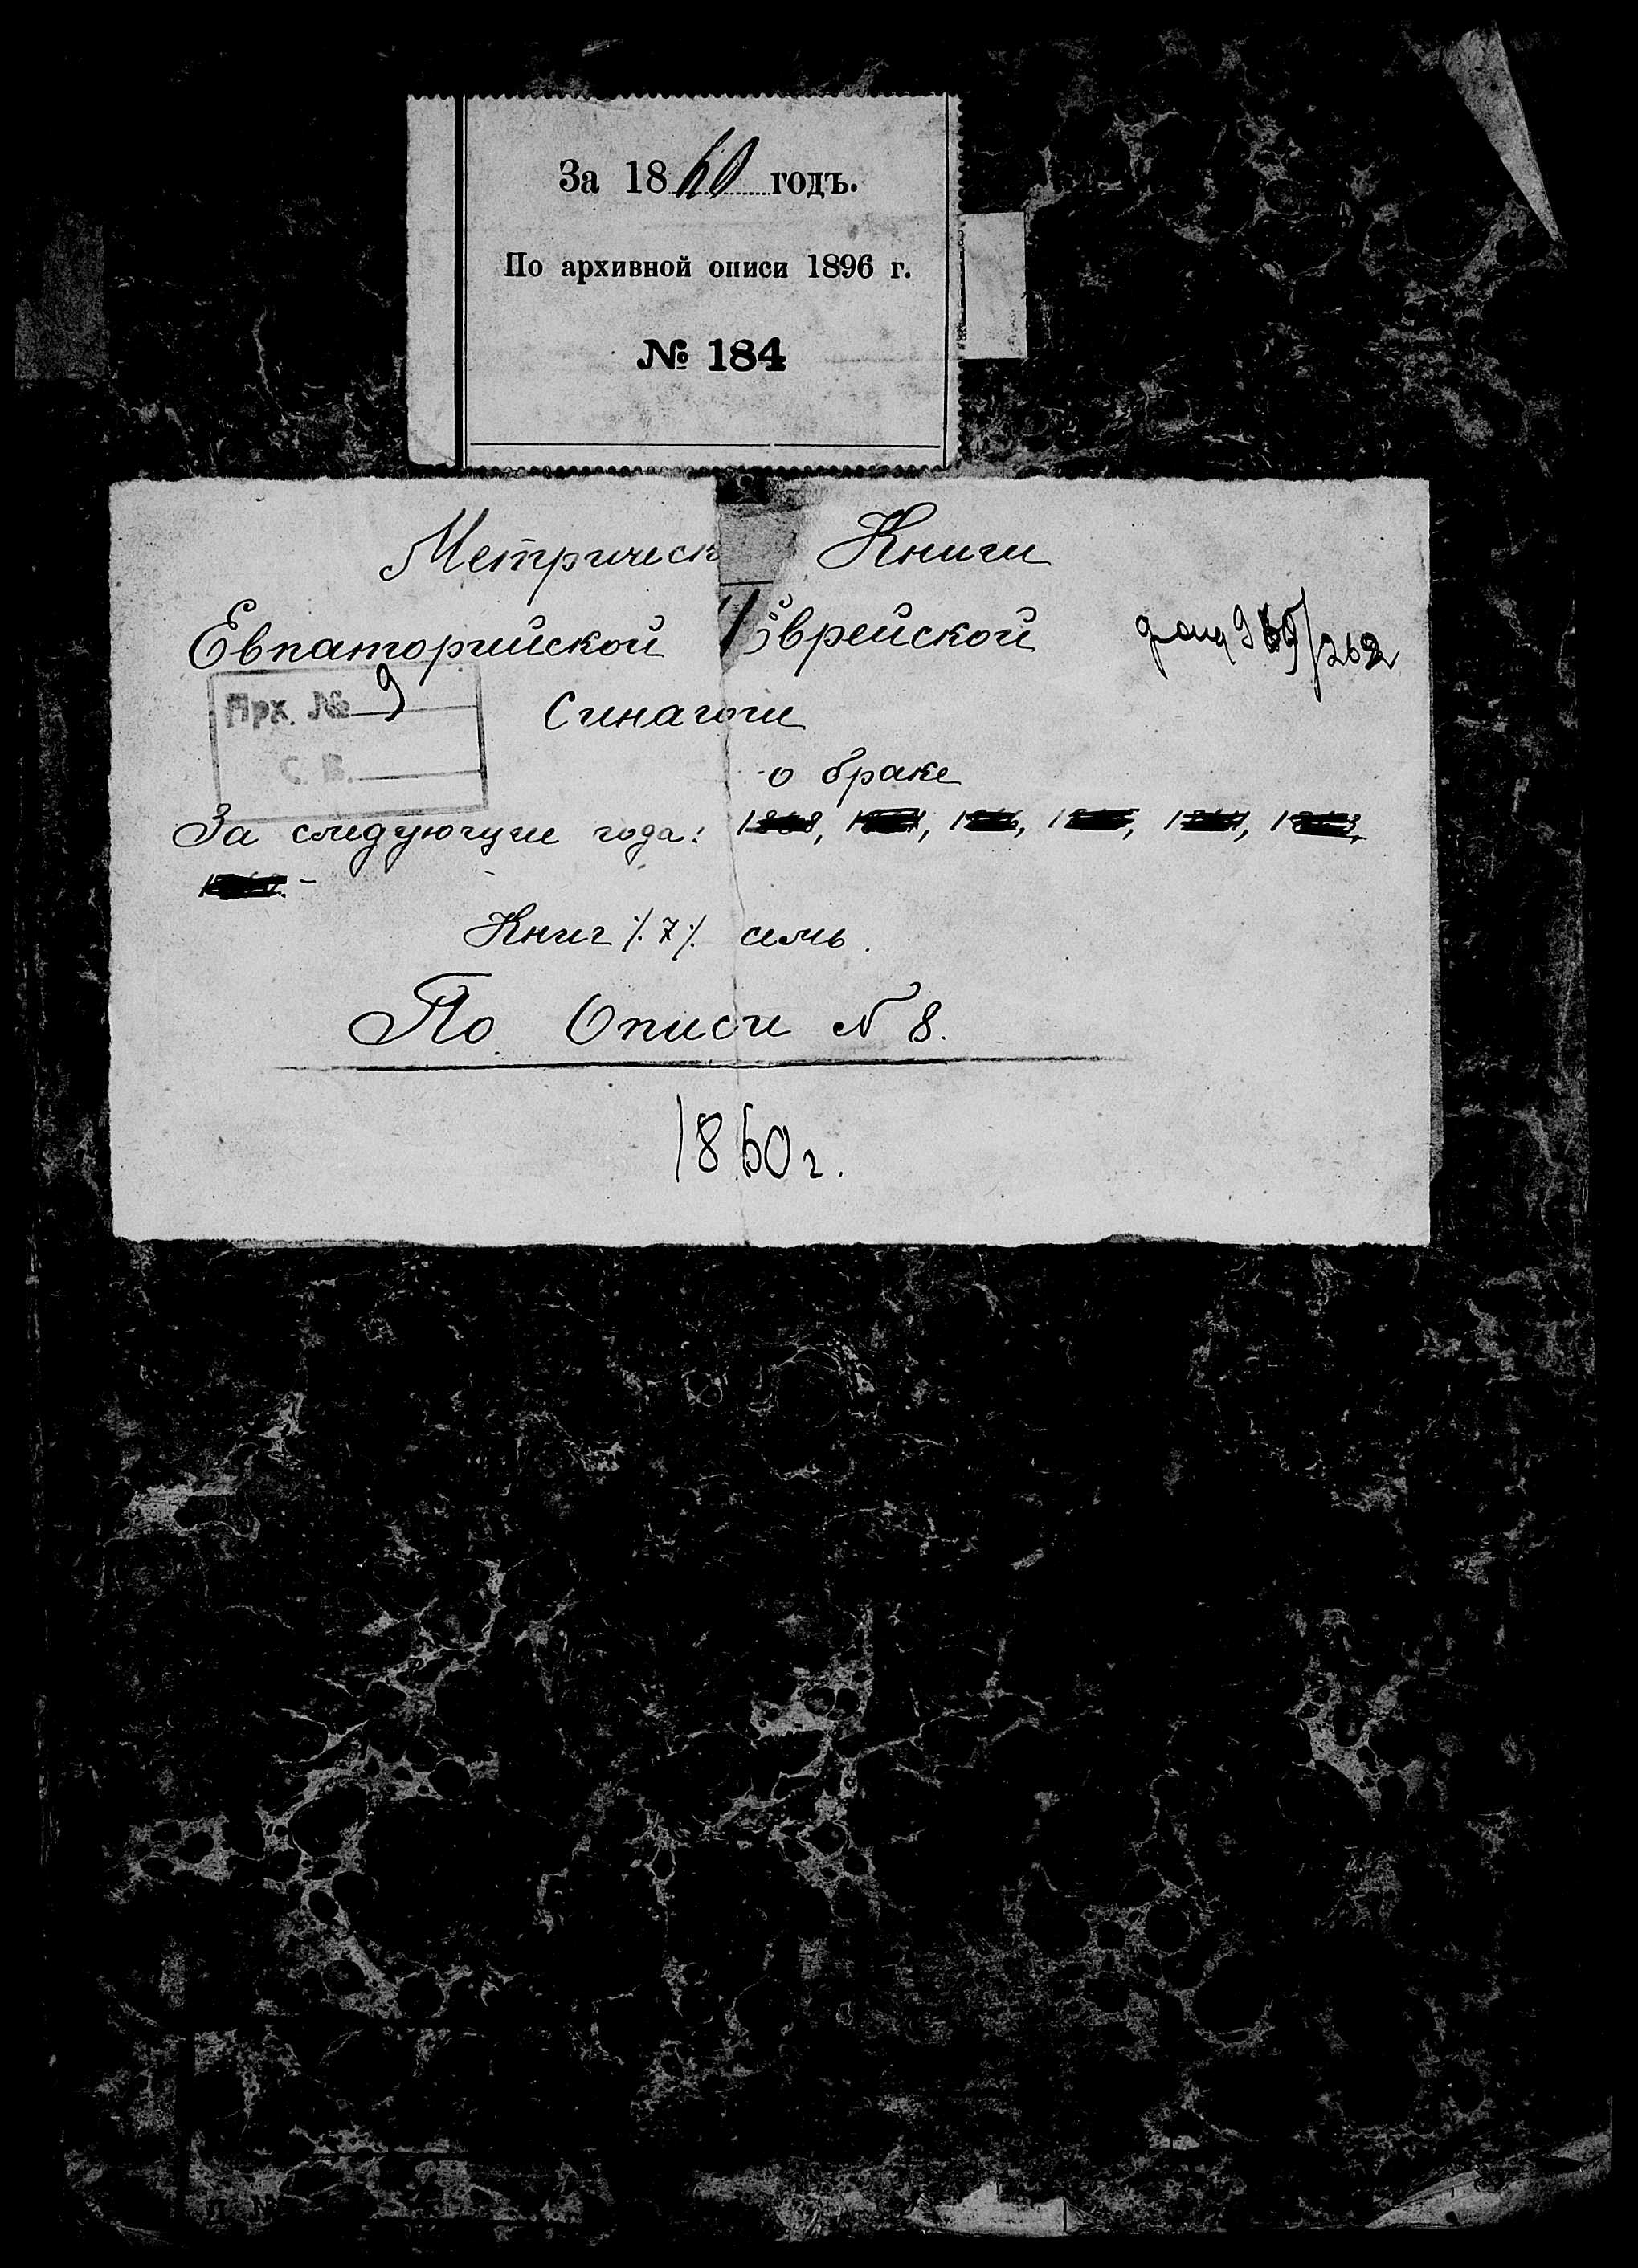 За 1860 годъ.
По архивной описи 1896 г.
№ 184
Метрическ Книги
Евпаторийской Еврейской
фонд
Арх. № 9
С. В.
Синагоги
о браке
За следующие года:
Книг /.7/. семь.
По Описи N 8.
1860 г.